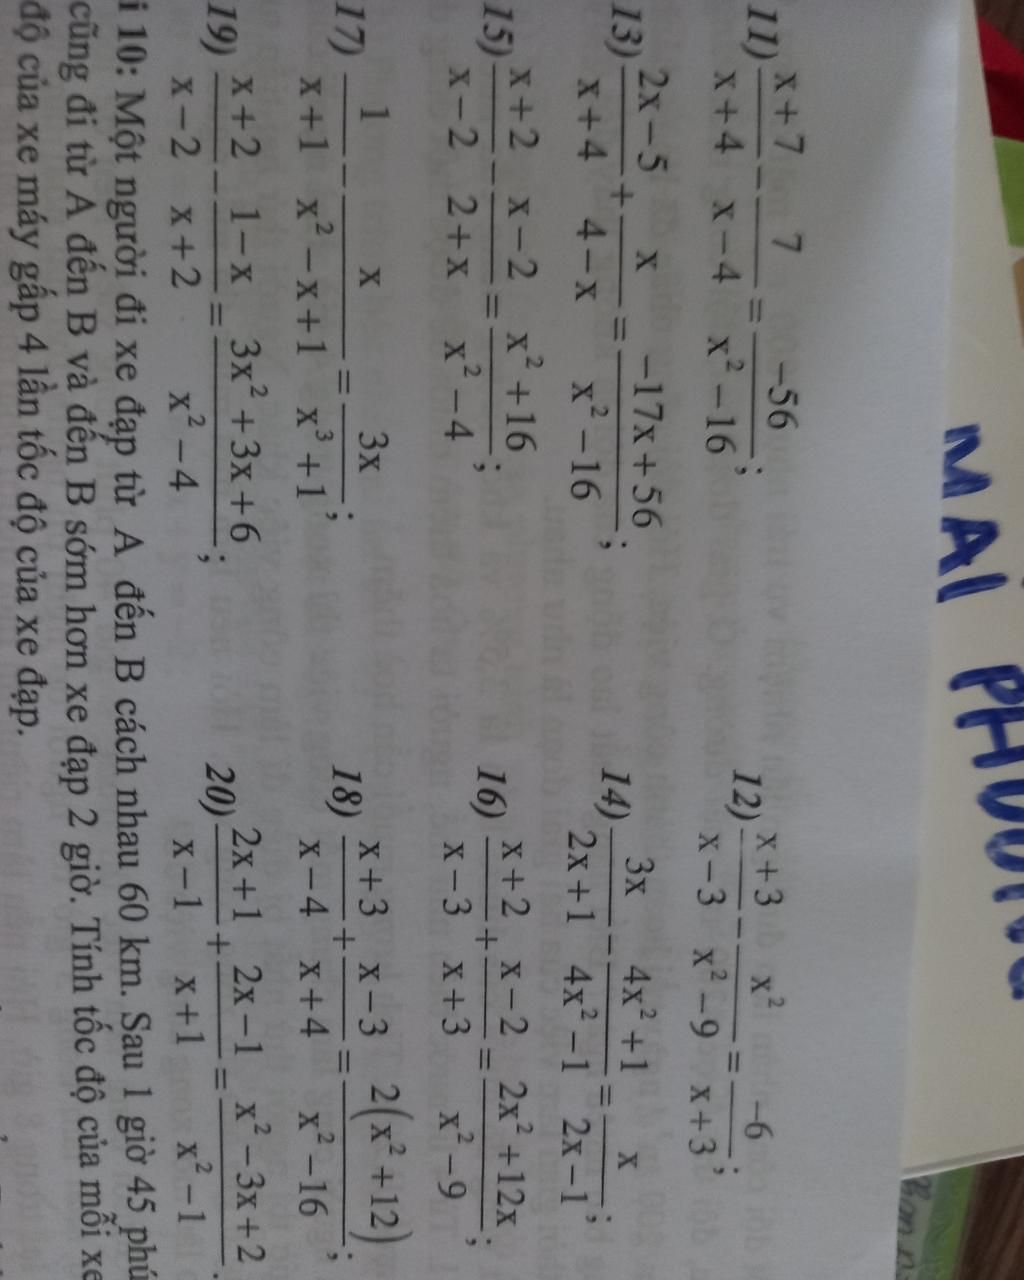 MAI PHƯƠNG
11) \frac{x+7}{x+4} - \frac{7}{x-4} = \frac{-56}{x^2-16};
12) \frac{x+3}{x-3} - \frac{x^2}{x^2-9} = \frac{-6}{x+3};
13) \frac{2x-5}{x+4} + \frac{x}{4-x} = \frac{-17x+56}{x^2-16};
14) \frac{3x}{2x+1} - \frac{4x^2+1}{4x^2-1} = \frac{x}{2x-1};
15) \frac{x+2}{x-2} - \frac{x-2}{2+x} = \frac{x^2+16}{x^2-4};
16) \frac{x+2}{x-3} + \frac{x-2}{x+3} = \frac{2x^2+12x}{x^2-9};
17) \frac{1}{x+1} - \frac{x}{x^2-x+1} = \frac{3x}{x^3+1};
18) \frac{x+3}{x-4} + \frac{x-3}{x+4} = \frac{2(x^2+12)}{x^2-16};
19) \frac{x+2}{x-2} - \frac{1-x}{x+2} = \frac{3x^2+3x+6}{x^2-4};
20) \frac{2x+1}{x-1} + \frac{2x-1}{x+1} = \frac{x^2-3x+2}{x^2-1}.
i 10: Một người đi xe đạp từ A đến B cách nhau 60 km. Sau 1 giờ 45 phú
cũng đi từ A đến B và đến B sớm hơn xe đạp 2 giờ. Tính tốc độ của mỗi xe
độ của xe máy gấp 4 lần tốc độ của xe đạp.